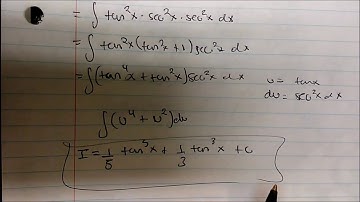 = ∫ tan²x · sec²x · sec²x dx
= ∫ tan²x (tan²x + 1) sec²x dx
= ∫ (tan⁴x + tan²x) sec²x dx
u = tanx
du = sec²x dx
∫ (u⁴ + u²) du
I = 1/5 tan⁵x + 1/3 tan³x + c